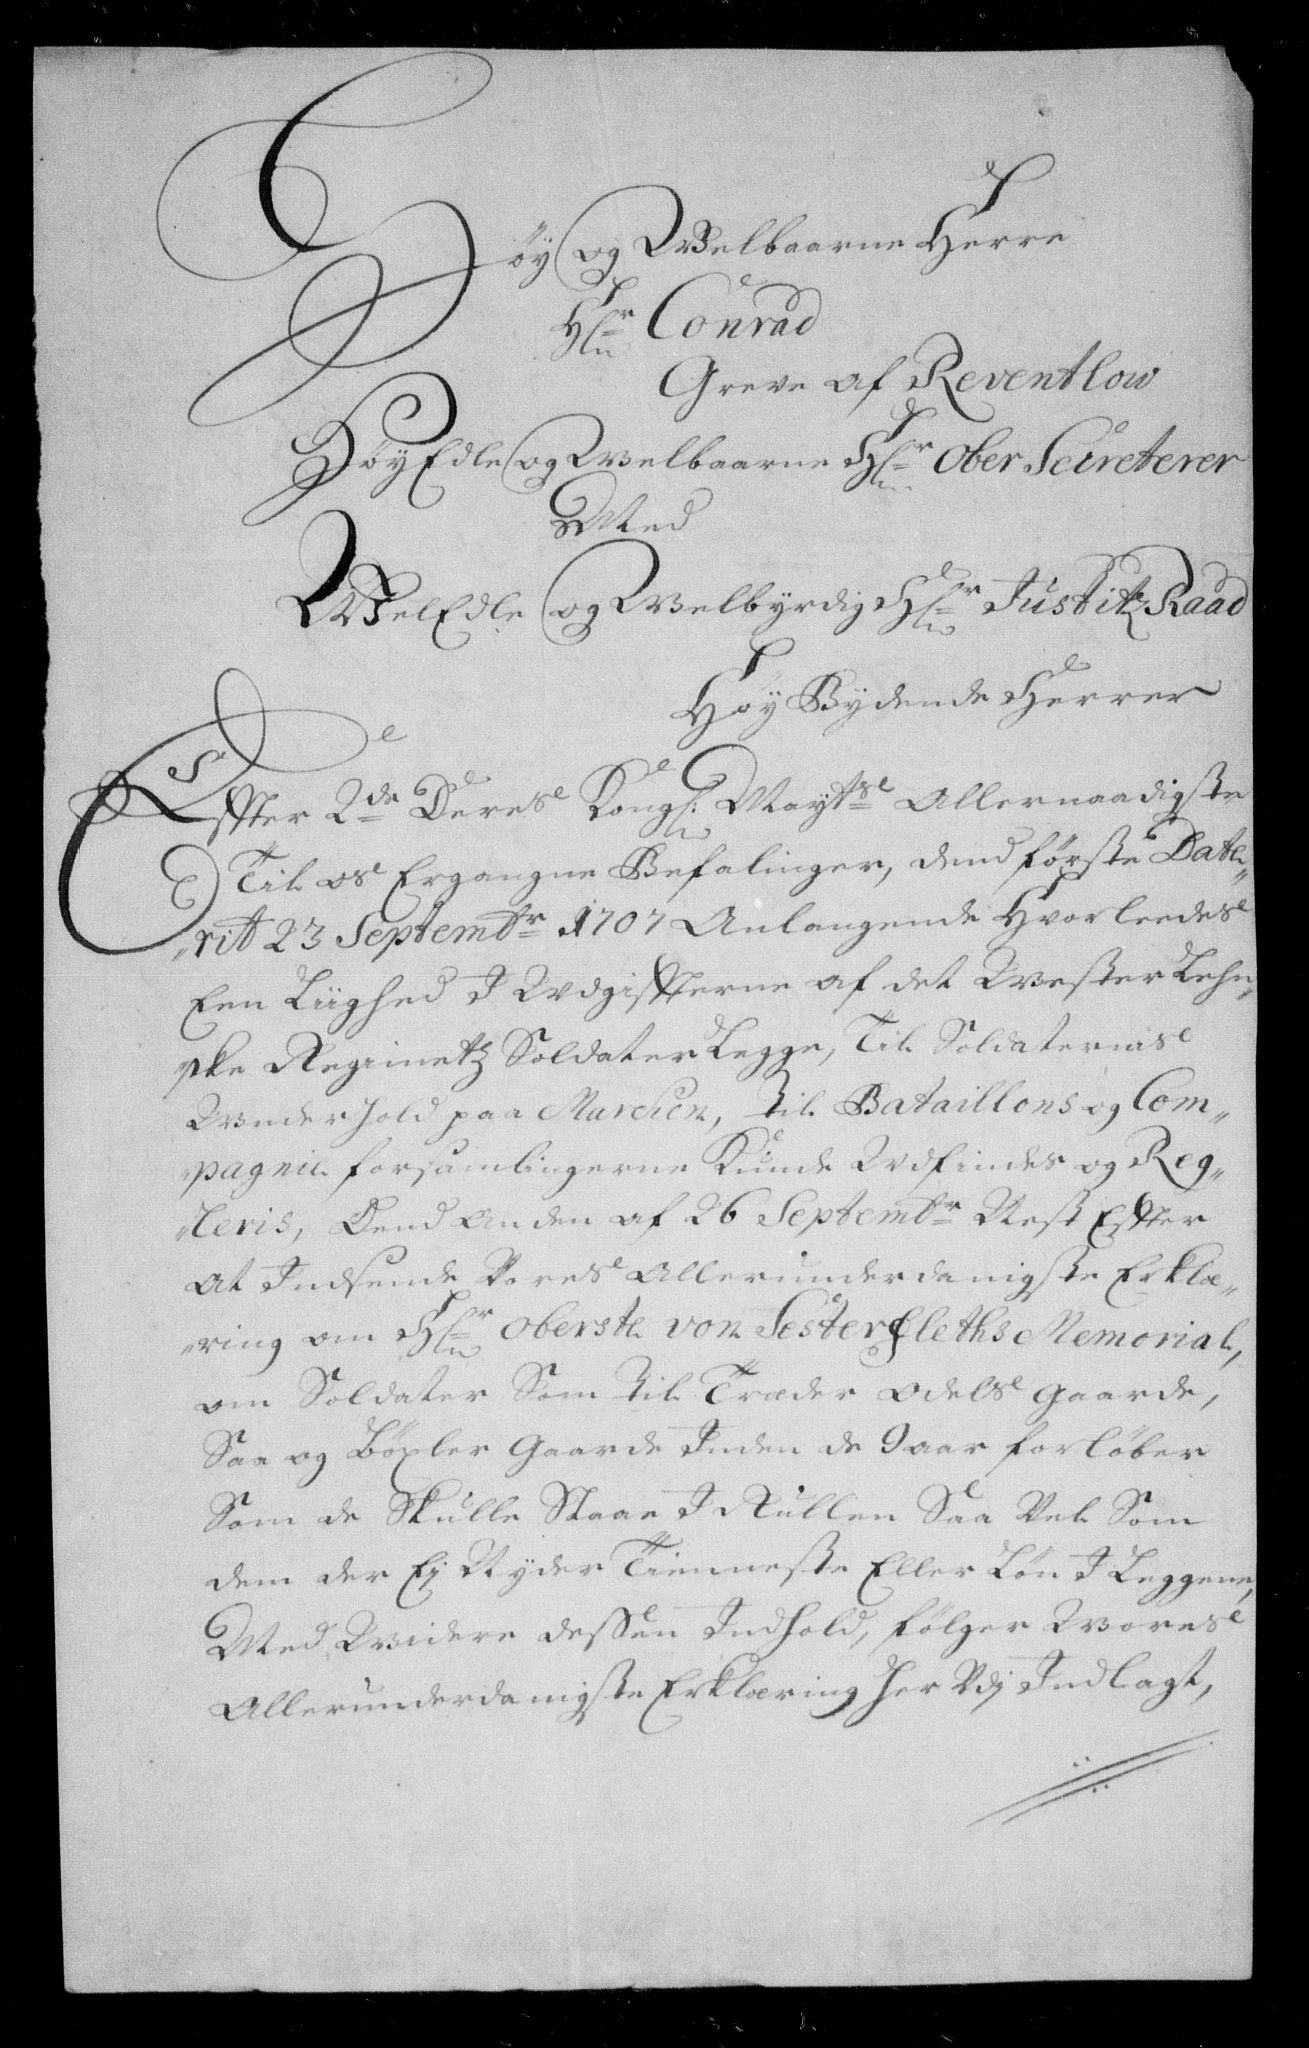 Høy og Welbaarne Herre
Hr Conrad
Greve af Reventlow
HøyEdle og Welbaarne Hr Ober Secreterer
Med
WelEdle og Welbyrdig Hr Justitz Raad
Høy Bydende Herrer
Effter 2de Deres Kongl: Mayts Allernaadigste
Til os Ergangne Befalinger, dend første Date„
„rit 23 Septembr 1707 Anlangende Hvorleedes
Een Liighed I Udgiffterne af det WesterLehn„
„ske Regimetz Soldater Legge, Til Soldaternis
Underhold paa Marchen, til Bataillons og Com„
„pagnie forsamlingerne Kunde Udfindes og Reg„
„leris, Dend Anden af 26 Septembr Nest Effter
at Indsende Vores allerunderdanigste Erklæ„
„ring om Hr Oberste von Sesterfleths Memorial,
om Soldater Som til Træder odels gaarde,
Saa og Bøxler Gaarde Inden de 9 aar forløber
Som de Skulle Staae I Rullen Saa Vel Som
dem der Ej Nyder Tienneste Eller Løn I Leggene,
Med Widere dessen Indhold, følger Wores
Allerunderdanigste Erklæring her Vdj Indlagt,